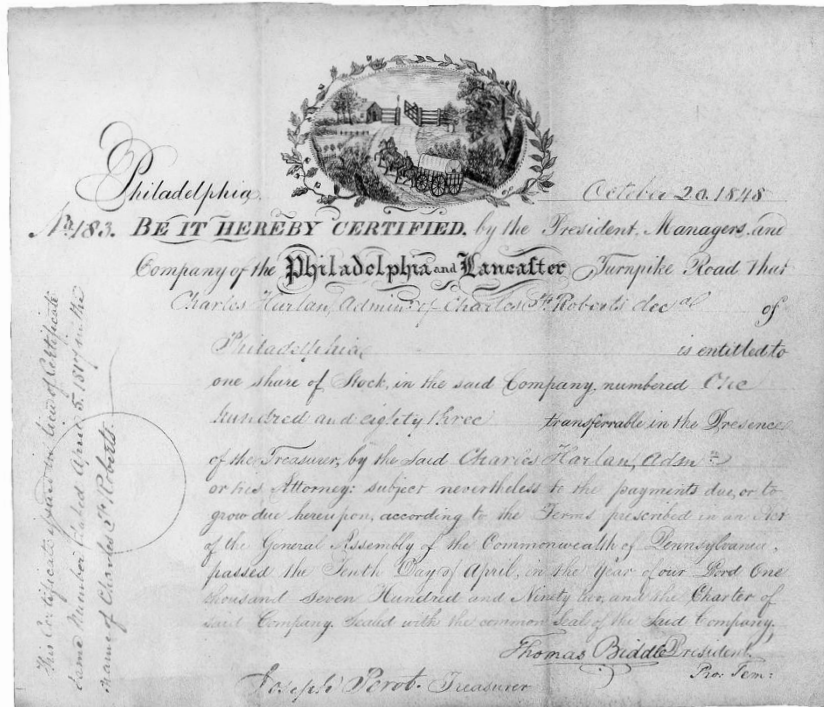 Philadelphia, October 20. 1848
No. 183. BE IT HEREBY CERTIFIED, by the President, Managers and
Company of the Philadelphia and Lancaster Turnpike Road that
Charles Harlan, Admin.r of Charles F. Roberts dec.d of
Philadelphia is entitled to
one share of Stock, in the said Company, numbered One
hundred and eighty three transferrable in the Presence
of the Treasurer, by the said Charles Harlan, Adm.r
or his Attorney: subject nevertheless to the payments due, or to
grow due hereupon, according to the Terms prescribed in an Act
of the General Assembly of the Commonwealth of Pennsylvania,
passed the Tenth Day of April, in the Year of our Lord One
thousand Seven Hundred and Ninety two, and the Charter of
said Company. Sealed with the common Seal of the Said Company.
Thomas Biddle President
Pro: Tem:
Joseph Perot. Treasurer
This Certificate issued in lieu of Certificate
same Number dated April 5. 1817 in the
name of Charles F. Roberts.